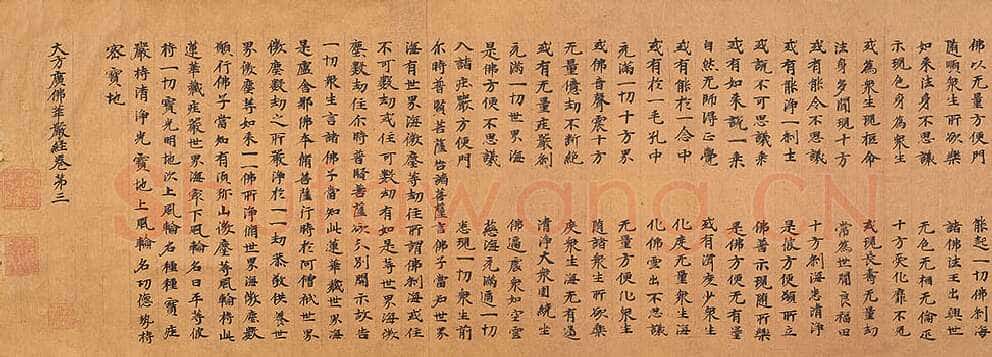 佛以无量方便門 能起一切佛刹海
随順衆生所欲樂 諸佛法王出興世
如來法身不思議 无色无相无倫匹
示現色身為衆生 十方受化靡不見
或為衆生現短命 或現長壽无量劫
法身多門現十方 常為世間良福田
或有能令不思議 十方刹海悉清淨
或有能淨一刹土 是故方便願所立
或說不可思議乘 佛普示現随所樂
或有如来說一乘 是佛方便无有量
自然无師得正覺 或有濟度少衆生
或有能於一念中 化度无量衆生海
或有於一毛孔中 化佛雲出不思議
充滿一切十方界 无量方便化衆生
或佛音聲震十方 随諸衆生所欲樂
无量億劫不断絶 度衆生海无有邊
或有无量莊嚴刹 清淨大衆圍繞坐
充滿一切世界海 佛遍處衆如空雲
是佛方便不思議 慈海充滿遍一切
入諸莊嚴方便門 悉現一切衆生前
尒時普賢菩薩告諸菩薩言佛子當知世界
海有世界海微塵等劫住所謂佛刹海或住
不可數劫或住可數劫有如是等世界海微
塵數劫住尒時普賢菩薩欲分別開示故告
一切衆生言諸佛子當知此蓮華藏世界海
是盧舍那佛本脩菩薩行時於阿僧祇世界
微塵數劫之所嚴淨於一一劫恭敬供養世
界微塵等如來一一佛所淨脩世界海微塵數
願行佛子當知有須弥山微塵等風輪持此
蓮華藏莊嚴世界海最下風輪名曰平等彼
持一切寶光明地次上風輪名種種寶莊
嚴持清淨光寶地上風輪名功德勢持
密寶地
大方廣佛華嚴経卷第三
Shufawang.CN